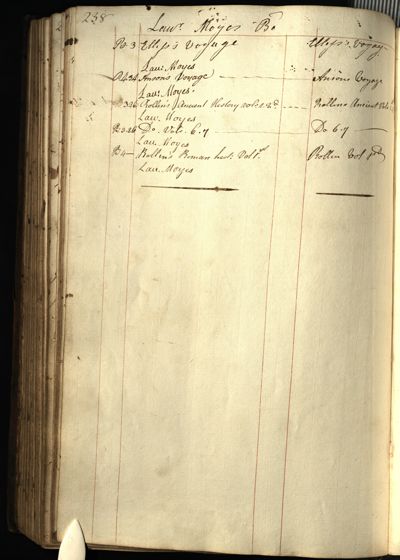 238
Lawr. Moyes Ba
R. 3 Ellis's Voyage Ellis's Voyag
Law. Moyes
Anson's Voyage Ansons Voyage
Law. Moyes
Rollin's Ancient History vols Rollins Ancient Vols
Law. Moyes
Do. Vols. 6.7 Do 6.7
Law Moyes
R 4 Rollin's Roman hist. Vol 1st Rollin Vol 1st
Law. Moyes